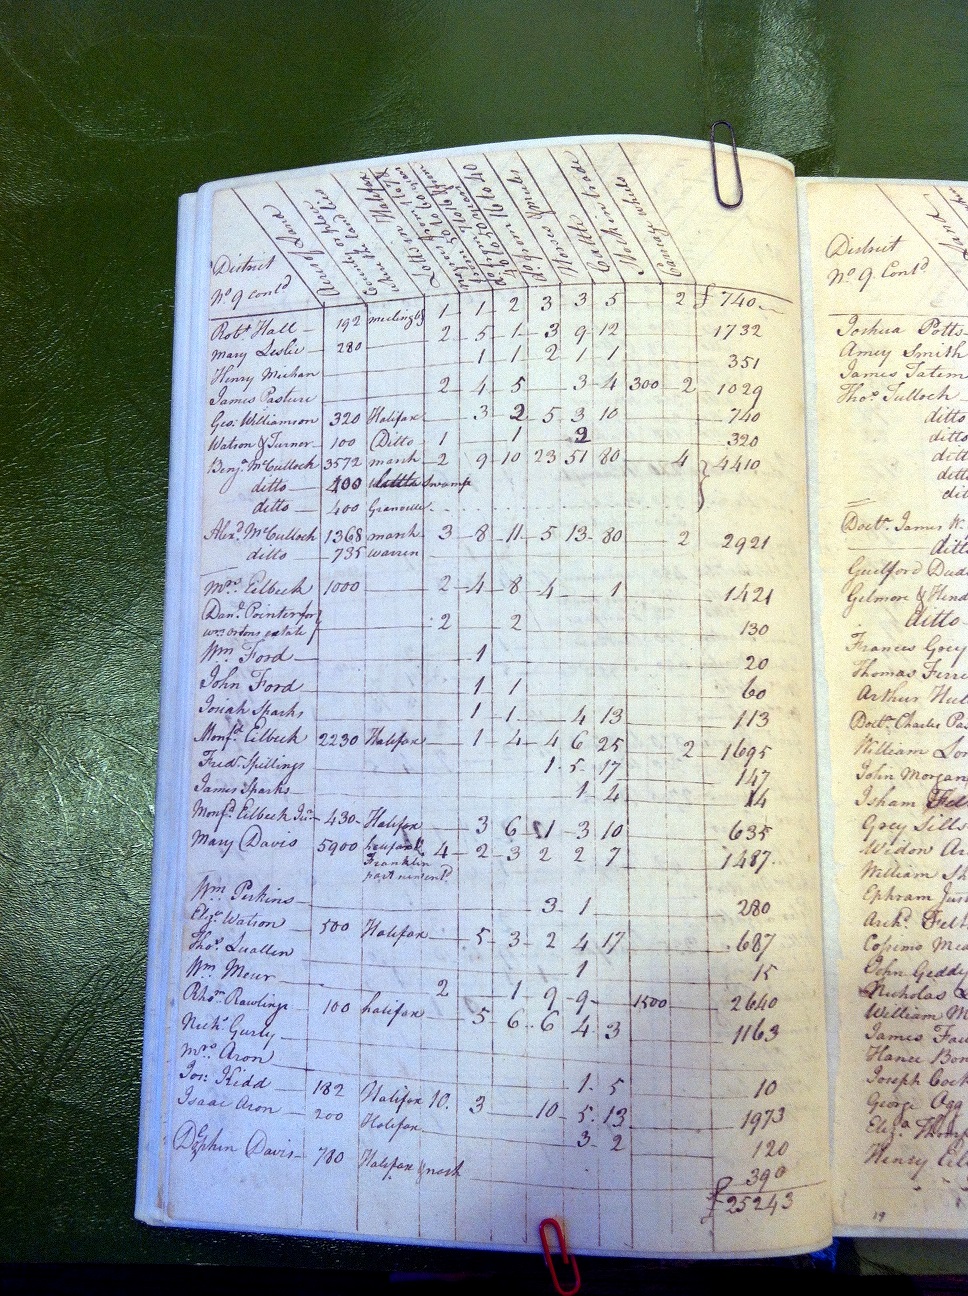 District
No 9 Contd
Acres of Land
County or place where the land lies
Lotts in Halifax
Horses & Mules
Cattle
Stock in trade
Carriage wheels
Robt Hall 192 mecling& 1 1 2 3 3 5 2 £740
Mary Leslie 280 2 5 1 3 9 12 1732
Henry Meehan 1 1 2 1 1 351
James Pasture 2 4 5 3 4 300 2 1029
Geo: Williamson 320 Halifax 3 2 5 3 10 740
Watson & Turner 100 Ditto 1 1 2 320
Benja McCulloch 3572 marsh 2 9 10 23 51 80 4 4410
ditto 400 Swamp
ditto 400 Granville
Alexd McCulloch 1368 marsh 3 8 11 5 13 80 2 2921
ditto 735 Warren
Mrs. Eelbeck 1000 2 4 8 4 1 1421
Danl Pointer for
Wm ortons estate 2 2 130
Wm Ford 1 20
John Ford 1 1 60
Josiah Sparks 1 1 4 13 113
Monfd Eelbeck 2230 Halifax 1 4 4 6 25 2 1695
Fred. Spillings 1 5 17 147
James Sparks 1 4 14
Monfd Eelbeck Jur 430 Halifax 3 6 1 3 10 635
Mary Davis 5900 halifax & 4 2 3 2 2 7 1487
Franklin
part
Wm Perkins 3 1 280
Eliz. Watson 500 Halifax 5 3 2 4 17 687
Thos. Luallen 1 15
Wm Meur 2 1 9 9 1500 2640
Rhom Rawlings 100 halifax 5 6 6 4 3 1163
Nichs Gurly
Mrs. Aron 1 5 10
Jos: Kidd 182 Halifax 10. 3 10 5 13 1973
Isaac Aron 200 Halifax 3 2 120
Dephin Davis 780 Halifax & nash 390
£25243
District
No 9. Contd
Joshua Potts
Amey Smith
James Tatem
Thos. Tulloch
ditto
ditto
ditt
ditt
dit
Doctr. James W.
ditt
Guilford Dud
Gilmore & Hend
ditto
Frances Grey
Thomas Ferre
Arthur
Doctr. Charles Pa
William
John Morgan
Isham
Grey Sills
Widow Ar
William Sh
Ephram
Archd.
Cosimo Mea
John Geddy
Nicholas
William M
James Fau
Hance Bon
Joseph Cock
George Ogg
Eliza
Henry Eel
19